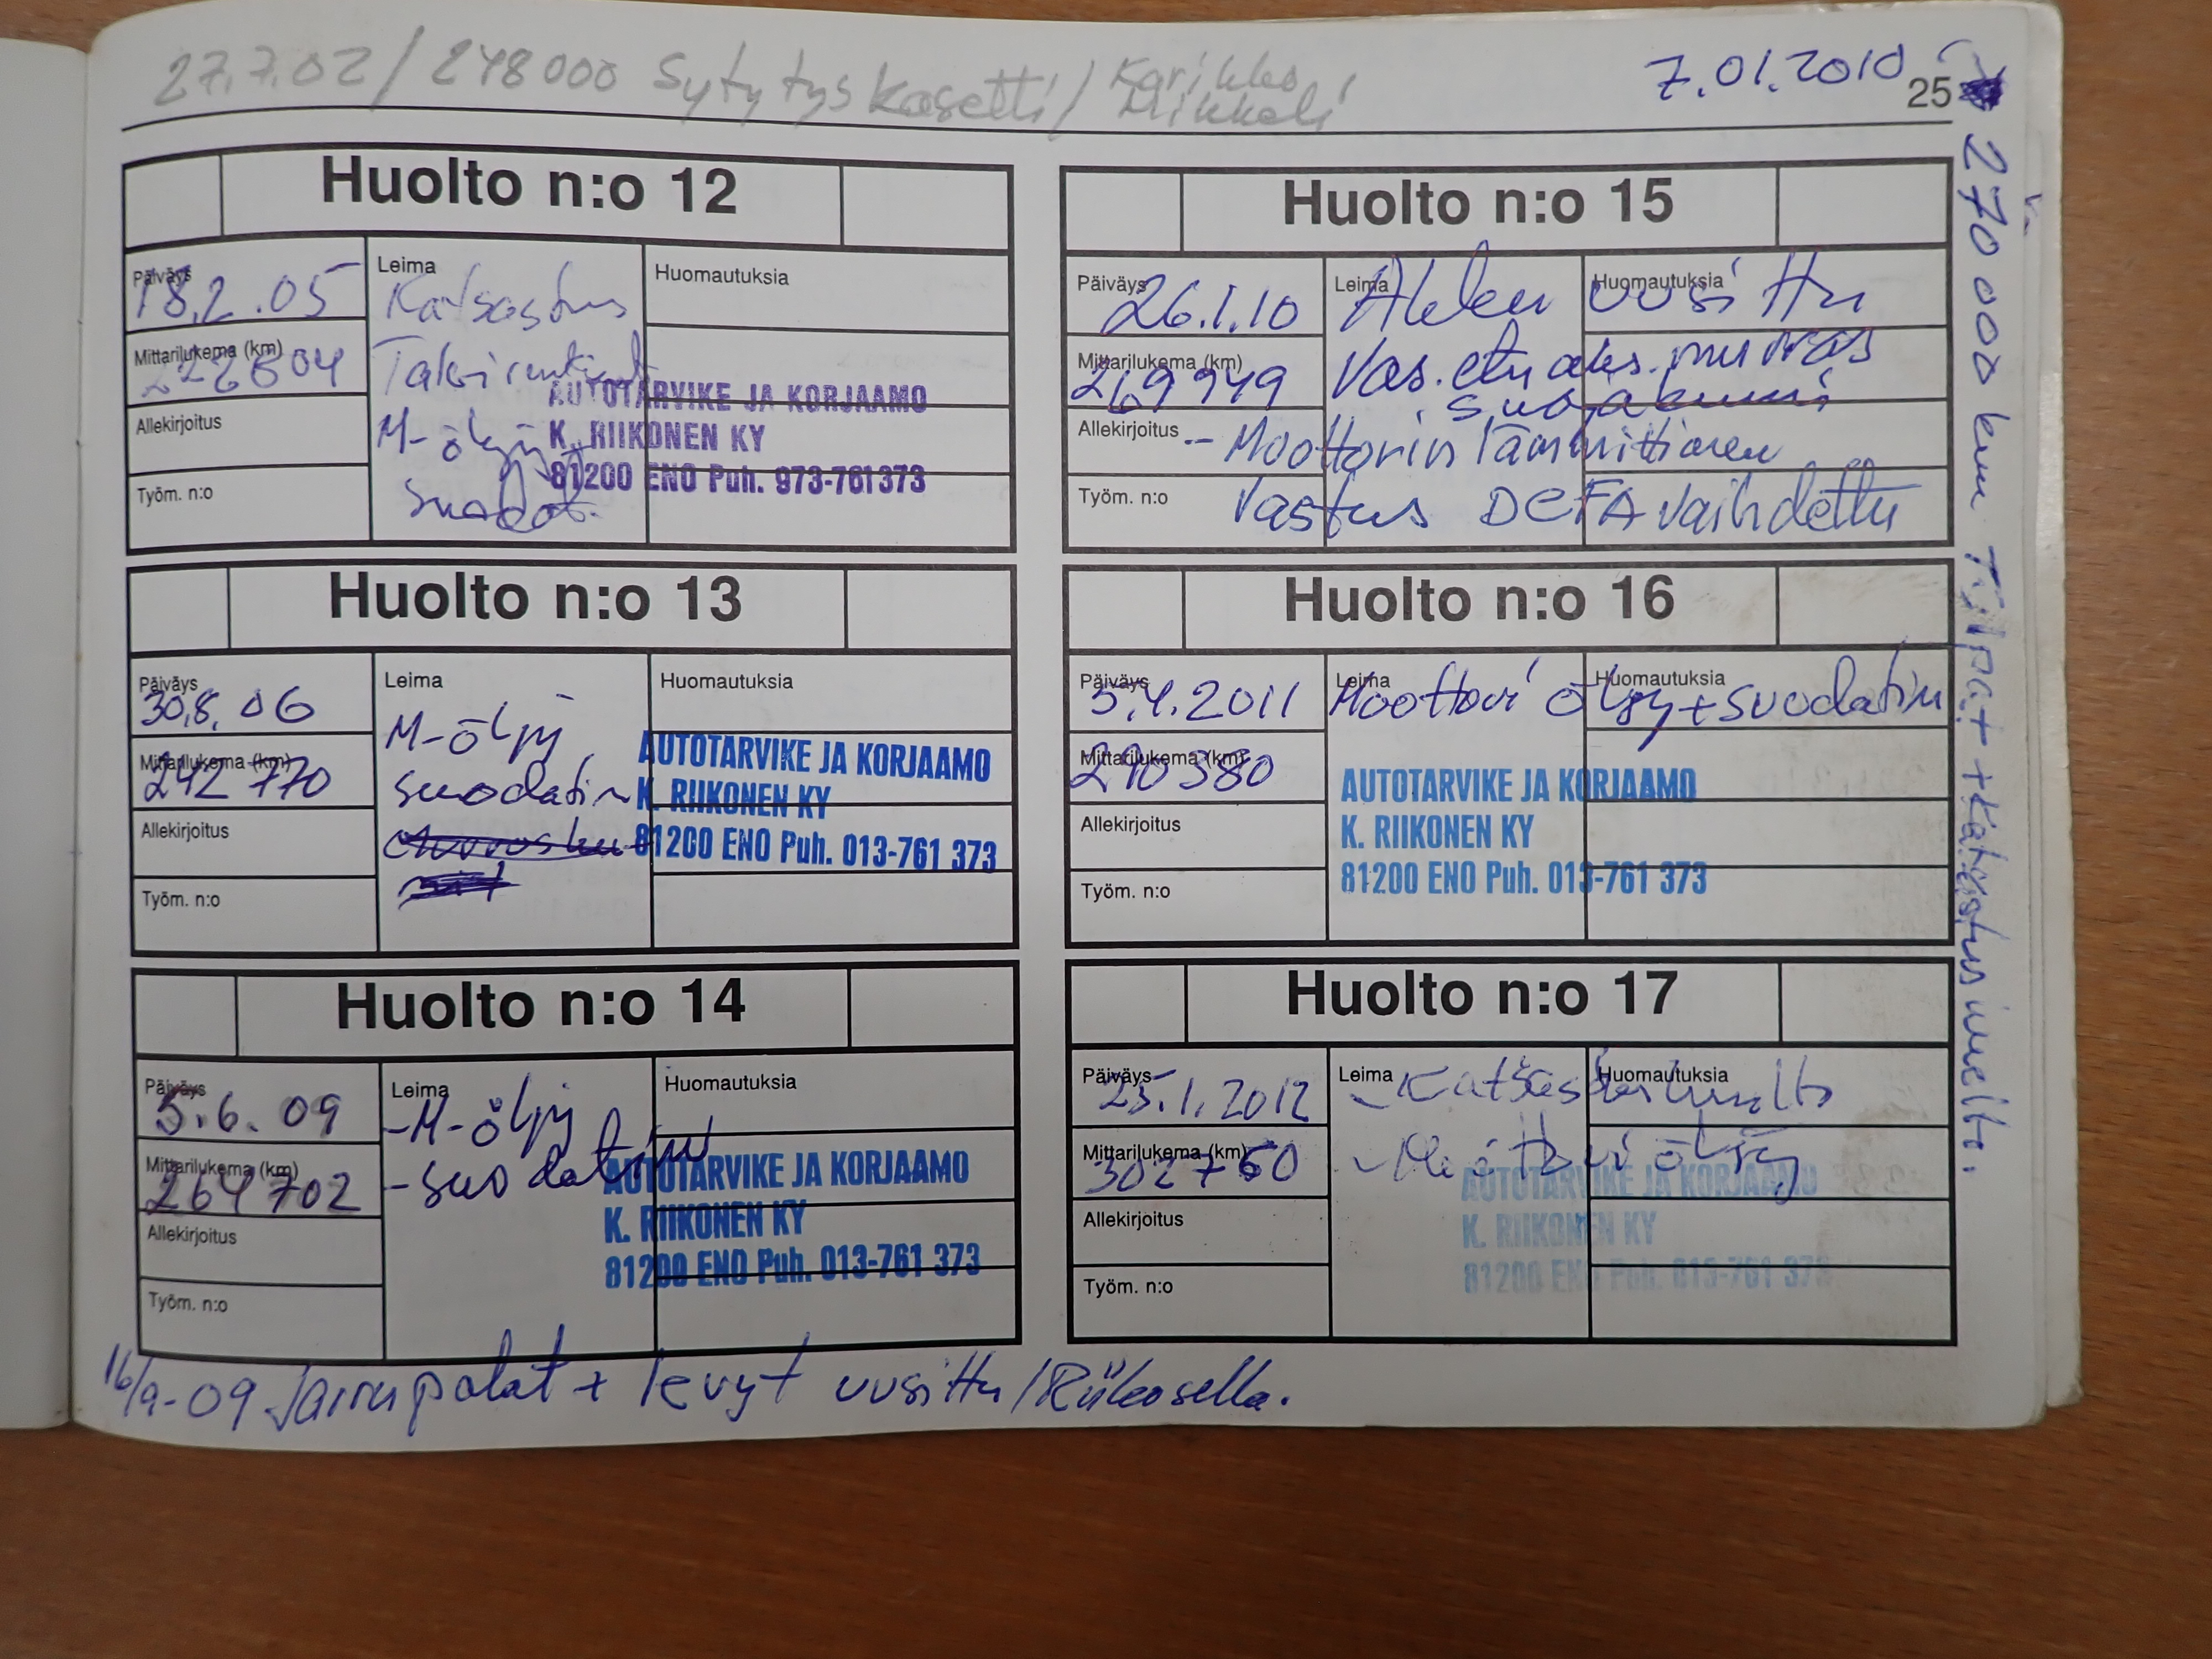 27.7.02 / 248000 Sytytyskasetti / Karikko Mikkeli
7.01.2010
25
270 000 km Tulpat + Katsastushuolto.
Huolto n:o 12
Päiväys
18.2.05
Mittarilukema (km)
222804
Allekirjoitus
Työm. n:o
Leima
Katsastus
M-öljyt
suodat.
AUTOTARVIKE JA KORJAAMO
K. RIIKONEN KY
81200 ENO Puh. 973-761373
Huomautuksia
Huolto n:o 13
Päiväys
30.8.06
Mittarilukema (km)
242 770
Allekirjoitus
Työm. n:o
Leima
M-öljy
suodatin
AUTOTARVIKE JA KORJAAMO
K. RIIKONEN KY
81200 ENO Puh. 013-761 373
Huomautuksia
Huolto n:o 14
Päiväys
5.6.09
Mittarilukema (km)
264702
Allekirjoitus
Työm. n:o
Leima
-M-öljy
-suodatin
AUTOTARVIKE JA KORJAAMO
K. RIIKONEN KY
81200 ENO Puh. 013-761 373
Huomautuksia
16/9-09 Jarrupalat + levyt uusittu / Riikosella.
Huolto n:o 15
Päiväys
26.1.10
Mittarilukema (km)
269949
Allekirjoitus
Työm. n:o
Leima
Huomautuksia
Akku uusittu
Vas. etu aks. murros
suojakumi
- Moottorin lämmittimen
vastus DEFA vaihdettu
Huolto n:o 16
Päiväys
5.4.2011
Mittarilukema (km)
290380
Allekirjoitus
Työm. n:o
Leima
Huomautuksia
Moottori öljy + suodatin
AUTOTARVIKE JA KORJAAMO
K. RIIKONEN KY
81200 ENO Puh. 013-761 373
Huolto n:o 17
Päiväys
25.1.2012
Mittarilukema (km)
302760
Allekirjoitus
Työm. n:o
Leima
Huomautuksia
- Katsastushuolto
- Moottori öljy
AUTOTARVIKE JA KORJAAMO
K. RIIKONEN KY
81200 ENO Puh. 013-761 373